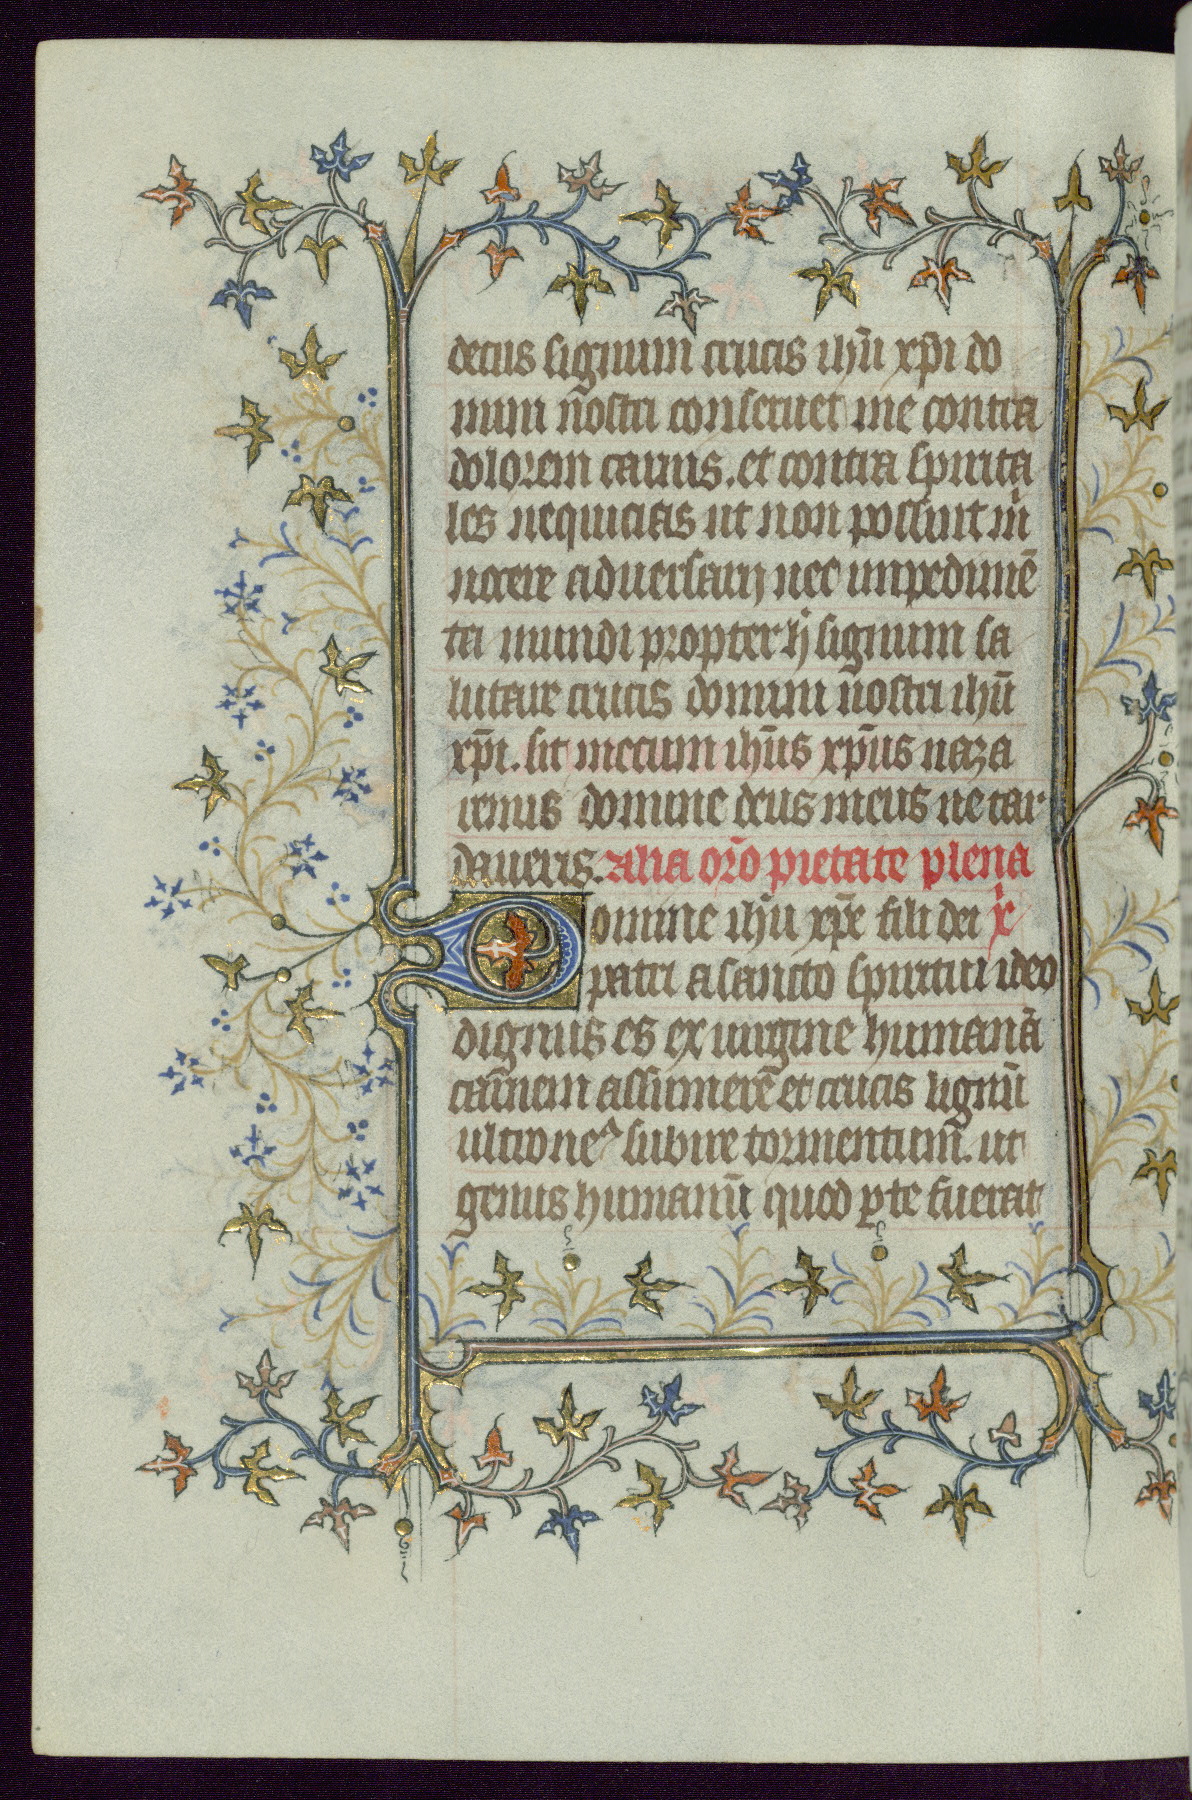 decus signum crucis ihū xp̄i do
mini nostri conseruet me contra
dolorem carnis. et contra spirita
les nequicias ut non possint in
nocere aduersarij nec impedimē
ta mundi propter h signum sa
lutare crucis domini nostri ihū
xp̄i. sit mecum ihūs xp̄us naza
renus domine deus meus ne tar
daueris. Alia oro pietate plena
Domine ihū xp̄e fili dei x
patri a sancto spiritui ideo
dignus es ex uirgine humanā
carnem assumerē et crucis lignū
ultione subire tormentum. ut
genus humanū quod p̱te fuerat